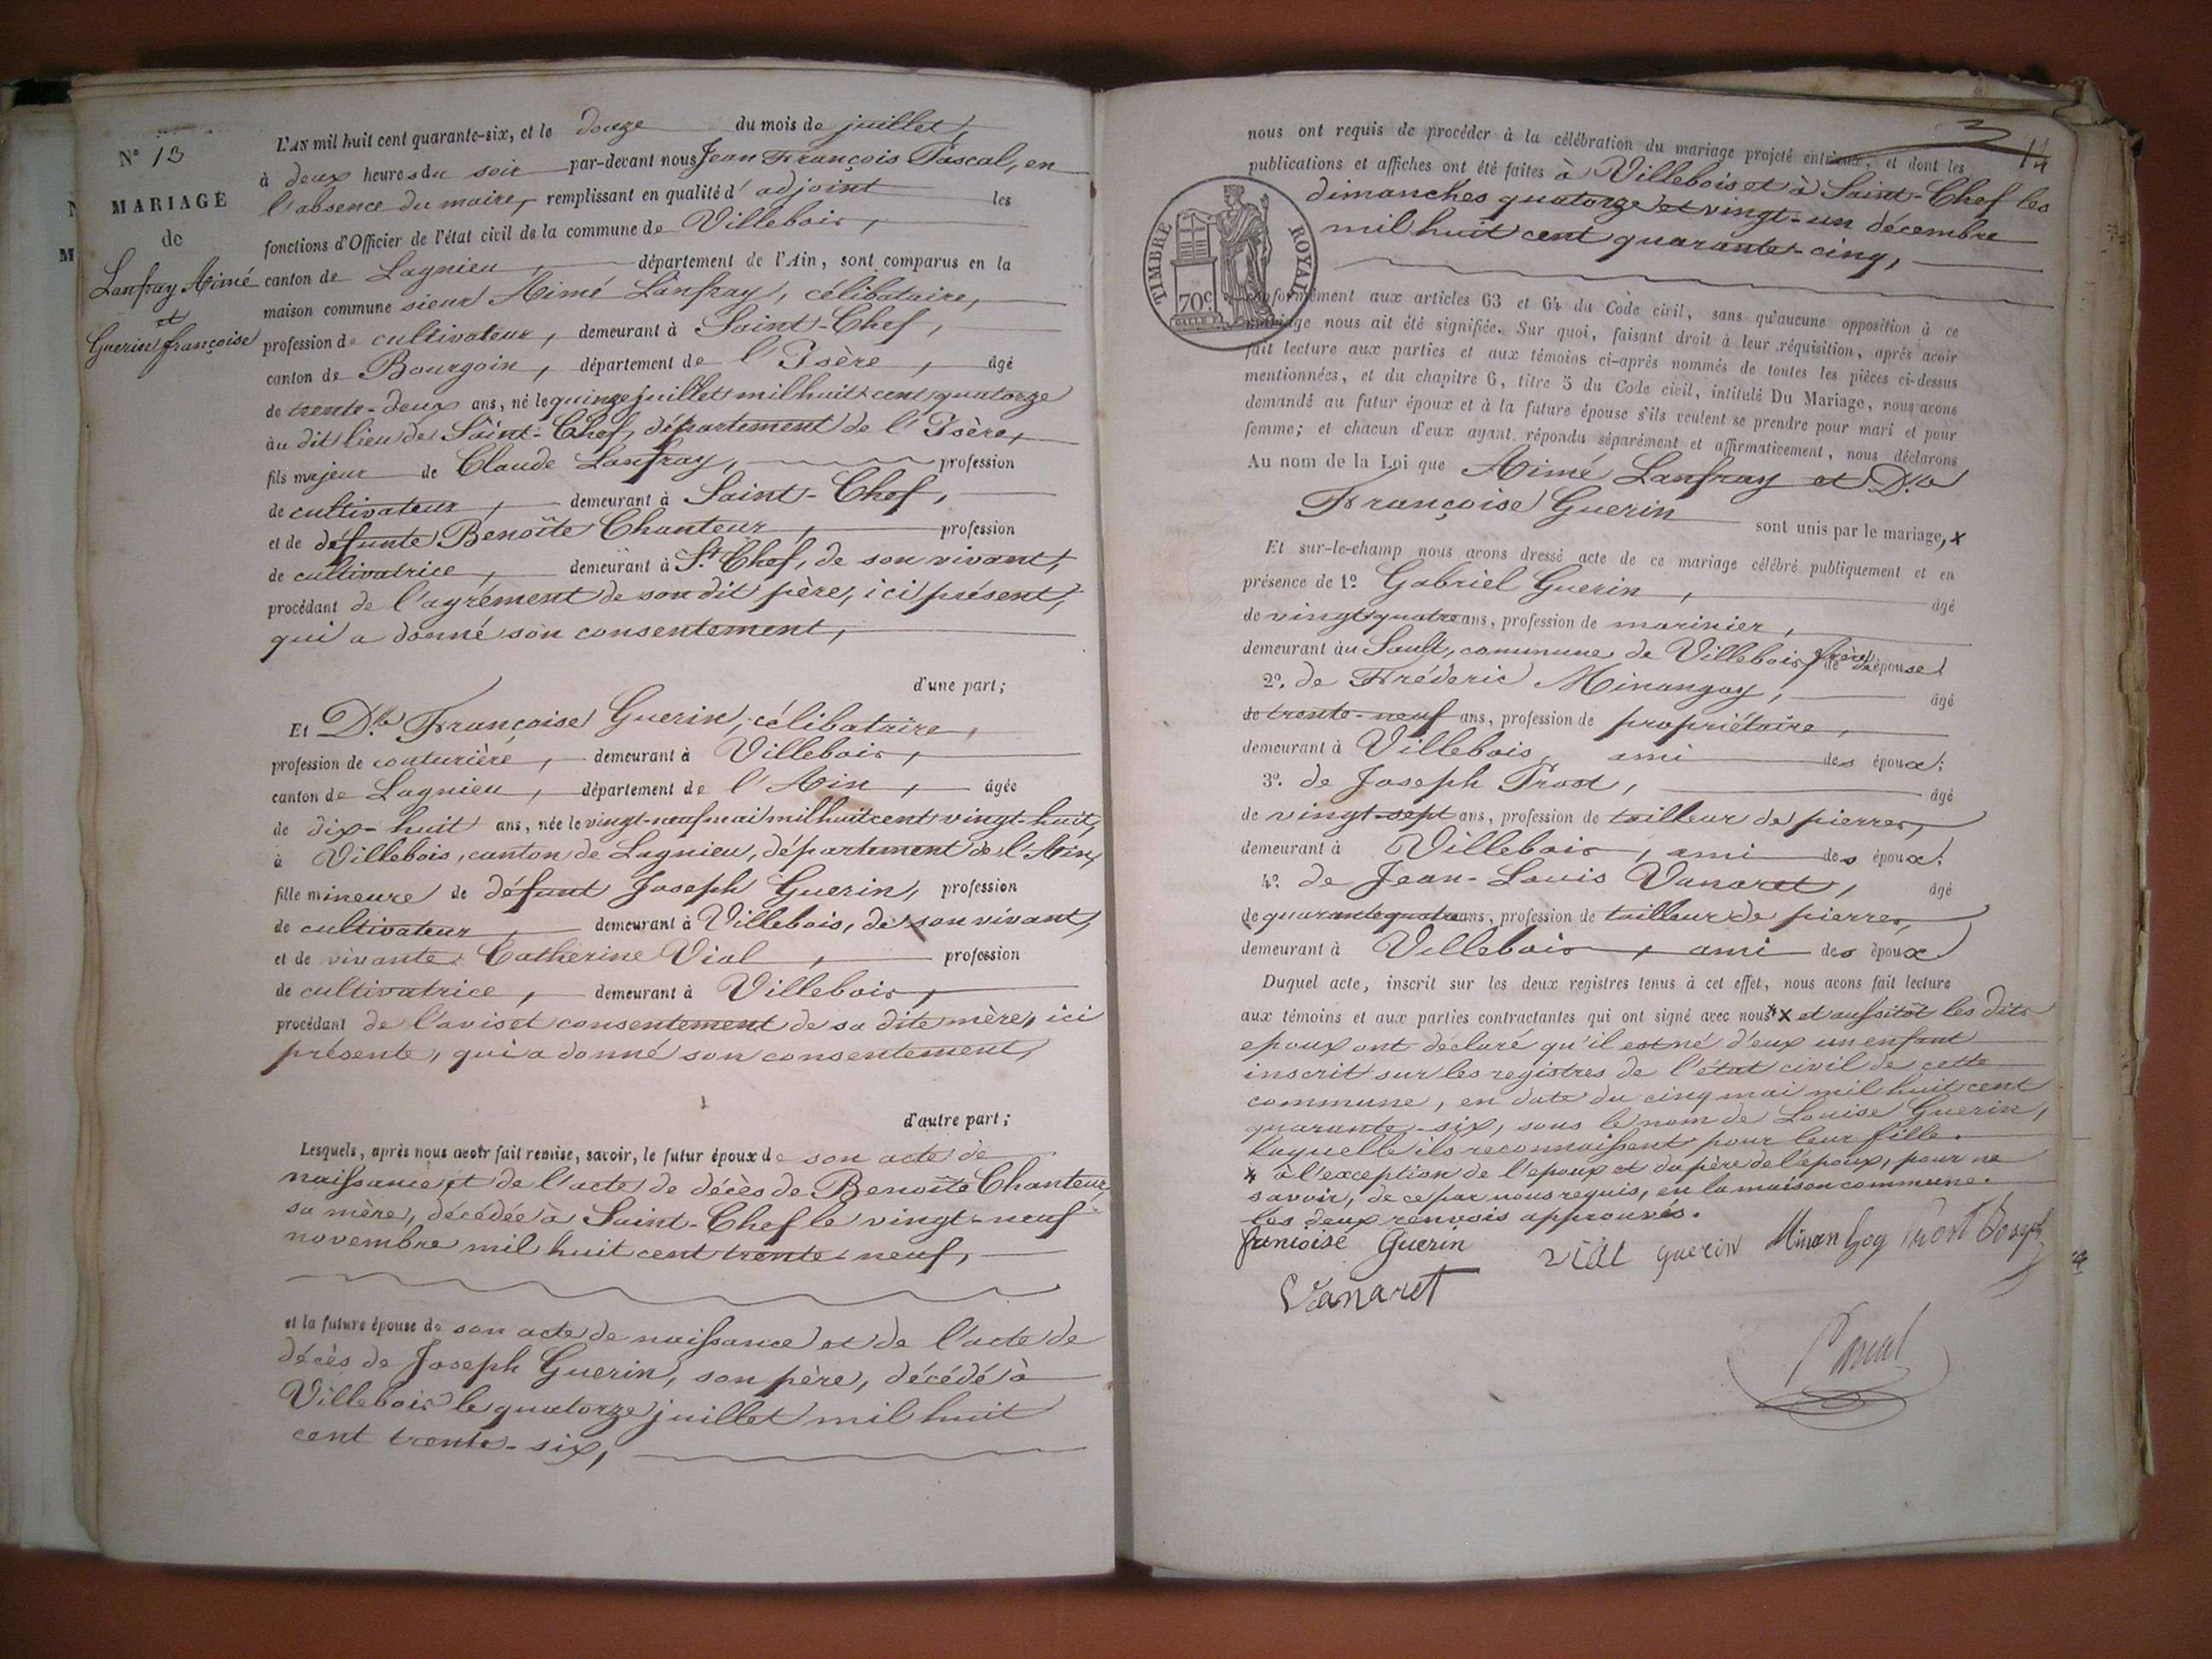 N° 13
MARIAGE
de
Lanfray Aimé
et
Guerin françoise
L'AN mil huit cent quarante-six, et le douze du mois de juillet,
à deux heures du soir par-devant nous Jean François Pascal, en
l'absence du maire, remplissant en qualité d'adjoint les
fonctions d'Officier de l'état civil de la commune de Villebois,
canton de Lagnieu, département de l'Ain, sont comparus en la
maison commune sieur Aimé Lanfray, célibataire,
profession de cultivateur, demeurant à Saint-Chef,
canton de Bourgoin, département de l'Isère, âgé
de trente-deux ans, né le quinze juillet mil huit cent quatorze
au dit lieu de Saint-Chef, département de l'Isère,
fils majeur de Claude Lanfray, profession
de cultivateur, demeurant à Saint-Chef,
et de défunte Benoîte Chanteur, profession
de cultivatrice, demeurant à St. Chef, de son vivant,
procédant de l'agrément de son dit père, ici présent,
qui a donné son consentement,
d'une part;
Et Dlle Françoise Guerin, célibataire,
profession de couturière, demeurant à Villebois,
canton de Lagnieu, département de l'Ain, âgée
de dix-huit ans, née le vingt-neuf mai mil huit cent vingt-huit,
à Villebois, canton de Lagnieu, département de l'Ain,
fille mineure de défunt Joseph Guerin, profession
de cultivateur, demeurant à Villebois, de son vivant,
et de vivante Catherine Vial, profession
de cultivatrice, demeurant à Villebois,
procédant de l'avis et consentement de sa dite mère, ici
présente, qui a donné son consentement,
d'autre part;
Lesquels, après nous avoir fait remise, savoir, le futur époux de son acte de
naissance et de l'acte de décès de Benoîte Chanteur,
sa mère, décédée à Saint-Chef le vingt-neuf
novembre mil huit cent trente-neuf,
et la future épouse de son acte de naissance et de l'acte de
décès de Joseph Guerin, son père, décédé à
Villebois le quatorze juillet mil huit
cent trente-six,
14
nous ont requis de procéder à la célébration du mariage projeté entr'eux, et dont les
publications et affiches ont été faites à Villebois et à Saint-Chef les
dimanches quatorze et vingt-un décembre
mil huit cent quarante-cinq,
TIMBRE ROYAL
70c
conformément aux articles 63 et 64 du Code civil, sans qu'aucune opposition à ce
mariage nous ait été signifiée. Sur quoi, faisant droit à leur réquisition, après avoir
fait lecture aux parties et aux témoins ci-après nommés de toutes les pièces ci-dessus
mentionnées, et du chapitre 6, titre 5 du Code civil, intitulé Du Mariage, nous avons
demandé au futur époux et à la future épouse s'ils veulent se prendre pour mari et pour
femme; et chacun d'eux ayant répondu séparément et affirmativement, nous déclarons
Au nom de la Loi que Aimé Lanfray et Dlle
Françoise Guerin sont unis par le mariage, x
Et sur-le-champ nous avons dressé acte de ce mariage célébré publiquement et en
présence de 1° Gabriel Guerin, âgé
de vingt quatre ans, profession de marinier,
demeurant au Sault, commune de Villebois, frère de l'épouse
2° de Fréderic Minangoy, âgé
de trente-neuf ans, profession de propriétaire,
demeurant à Villebois, ami des époux;
3° de Joseph Prost, âgé
de vingt-sept ans, profession de tailleur de pierres,
demeurant à Villebois, ami des époux;
4° de Jean-Louis Vanaret, âgé
de quarante quatre ans, profession de tailleur de pierres,
demeurant à Villebois, ami des époux
Duquel acte, inscrit sur les deux registres tenus à cet effet, nous avons fait lecture
aux témoins et aux parties contractantes qui ont signé avec nous* x et aussitôt les dits
epoux ont déclaré qu'il est né d'eux un enfant
inscrit sur les registres de l'état civil de cette
commune, en date du cinq mai mil huit cent
quarante-six, sous le nom de Louise Guerin,
laquelle ils reconnaissent pour leur fille.
* à l'exception de l'epoux et du père de l'époux, pour ne
savoir, de ce par nous requis, en la maison commune.
les deux renvois approuvés.
francoise Guerin vial guerin Minangoy Prost Joseph
Vanaret
Pascal